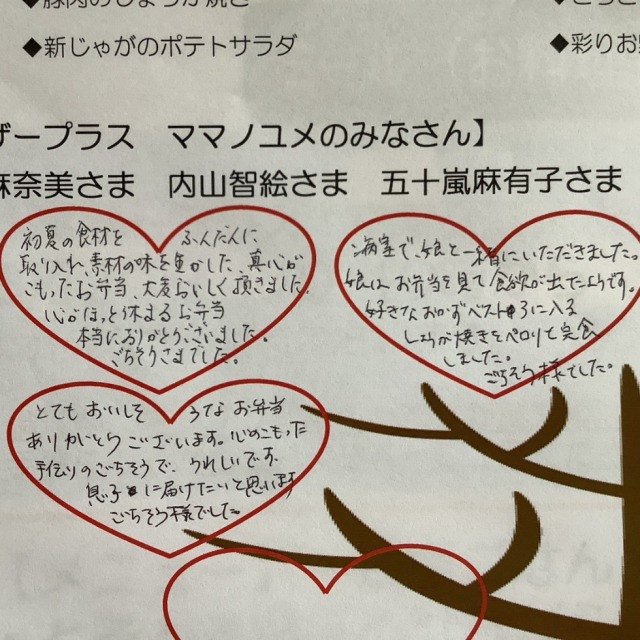 豚肉のしょうが焼き
◆新じゃがのポテトサラダ
◆彩りお
ザープラス ママノユメのみなさん】
麻奈美さま 内山智絵さま 五十嵐麻有子さま
初夏の食材を ふんだんに
取り入れ、素材の味を生かした、真心が
こもったお弁当、大変おいしく頂きました。
心がほっと休まるお弁当
本当にありがとうございました。
ごちそうさまでした。
病室で、娘と一緒にいただきました。
娘は、お弁当を見て食欲が出たようです。
好きなおかずベスト3に入る
しょうが焼きをペロリと完食
しました。
ごちそう様でした。
とてもおいしそうなお弁当
ありがとうございます。心のこもった
手作りのごちそうで、うれしいです。
息子に届けたいと思います
ごちそう様でした